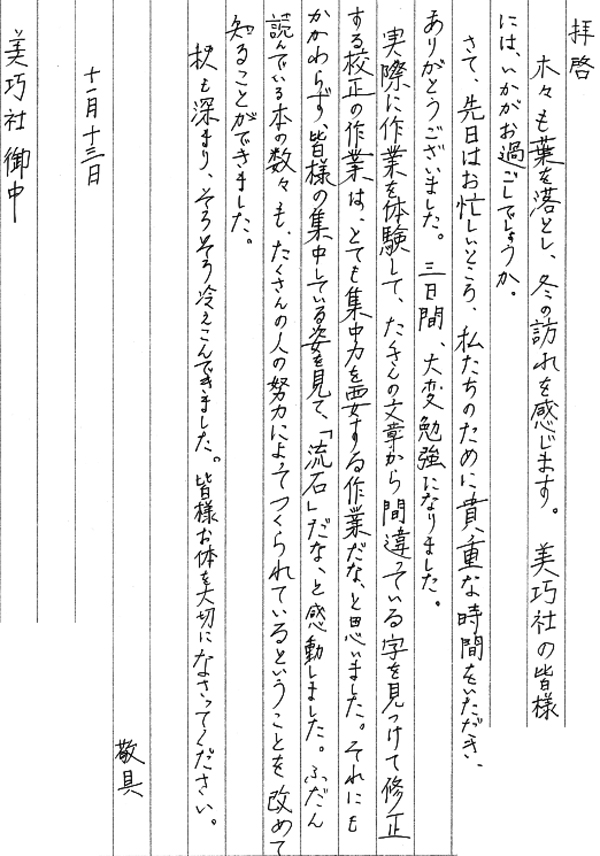 拝啓
木々も葉を落とし、冬の訪れを感じます。美巧社の皆様
には、いかがお過ごしでしょうか。
さて、先日はお忙しいところ、私たちのために貴重な時間をいただき、
ありがとうございました。三日間、大変勉強になりました。
実際に作業を体験して、たくさんの文章から間違っている字を見つけて修正
する校正の作業は、とても集中力を要する作業だな、と思いました。それにも
かかわらず、皆様の集中している姿を見て、「流石」だな、と感動しました。ふだん
読んでいる本の数々も、たくさんの人の努力によってつくられているということを改めて
知ることができました。
秋も深まり、そろそろ冷えこんできました。皆様お体を大切になさってください。
敬具
十一月十三日
美巧社御中